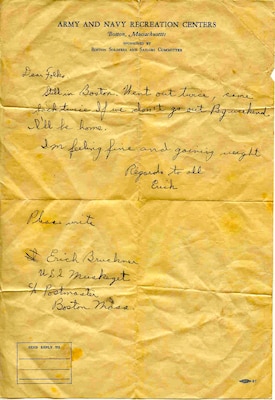 ARMY AND NAVY RECREATION CENTERS
Boston, Massachusetts
SPONSORED BY
BOSTON SOLDIERS AND SAILORS COMMITTEE
Dear Folks
Still in Boston. Went out twice, came
back twice. If we don't go out by weekend
I'll be home.
I'm feeling fine and gaining weight
Regards to all
Erich
Please write
Erich Bruckner
USS Muskeget
c/o Postmaster
Boston Mass.
SEND REPLY TO